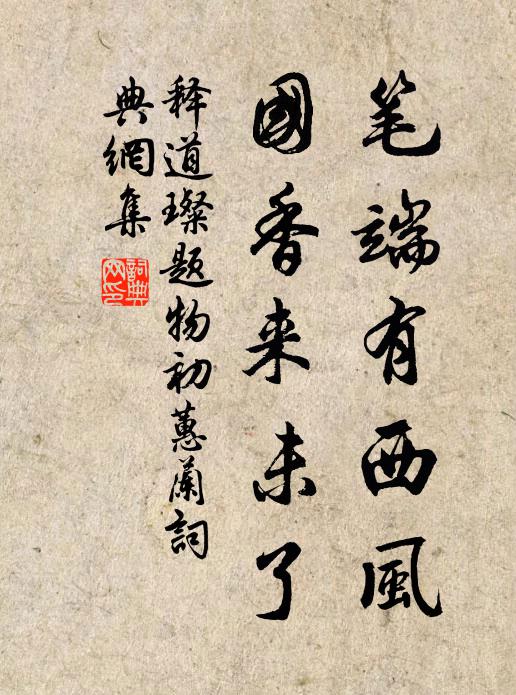 笔端有西風
國香来未了
释道璨题物初蕙蘭詞
典網集
詞典网印